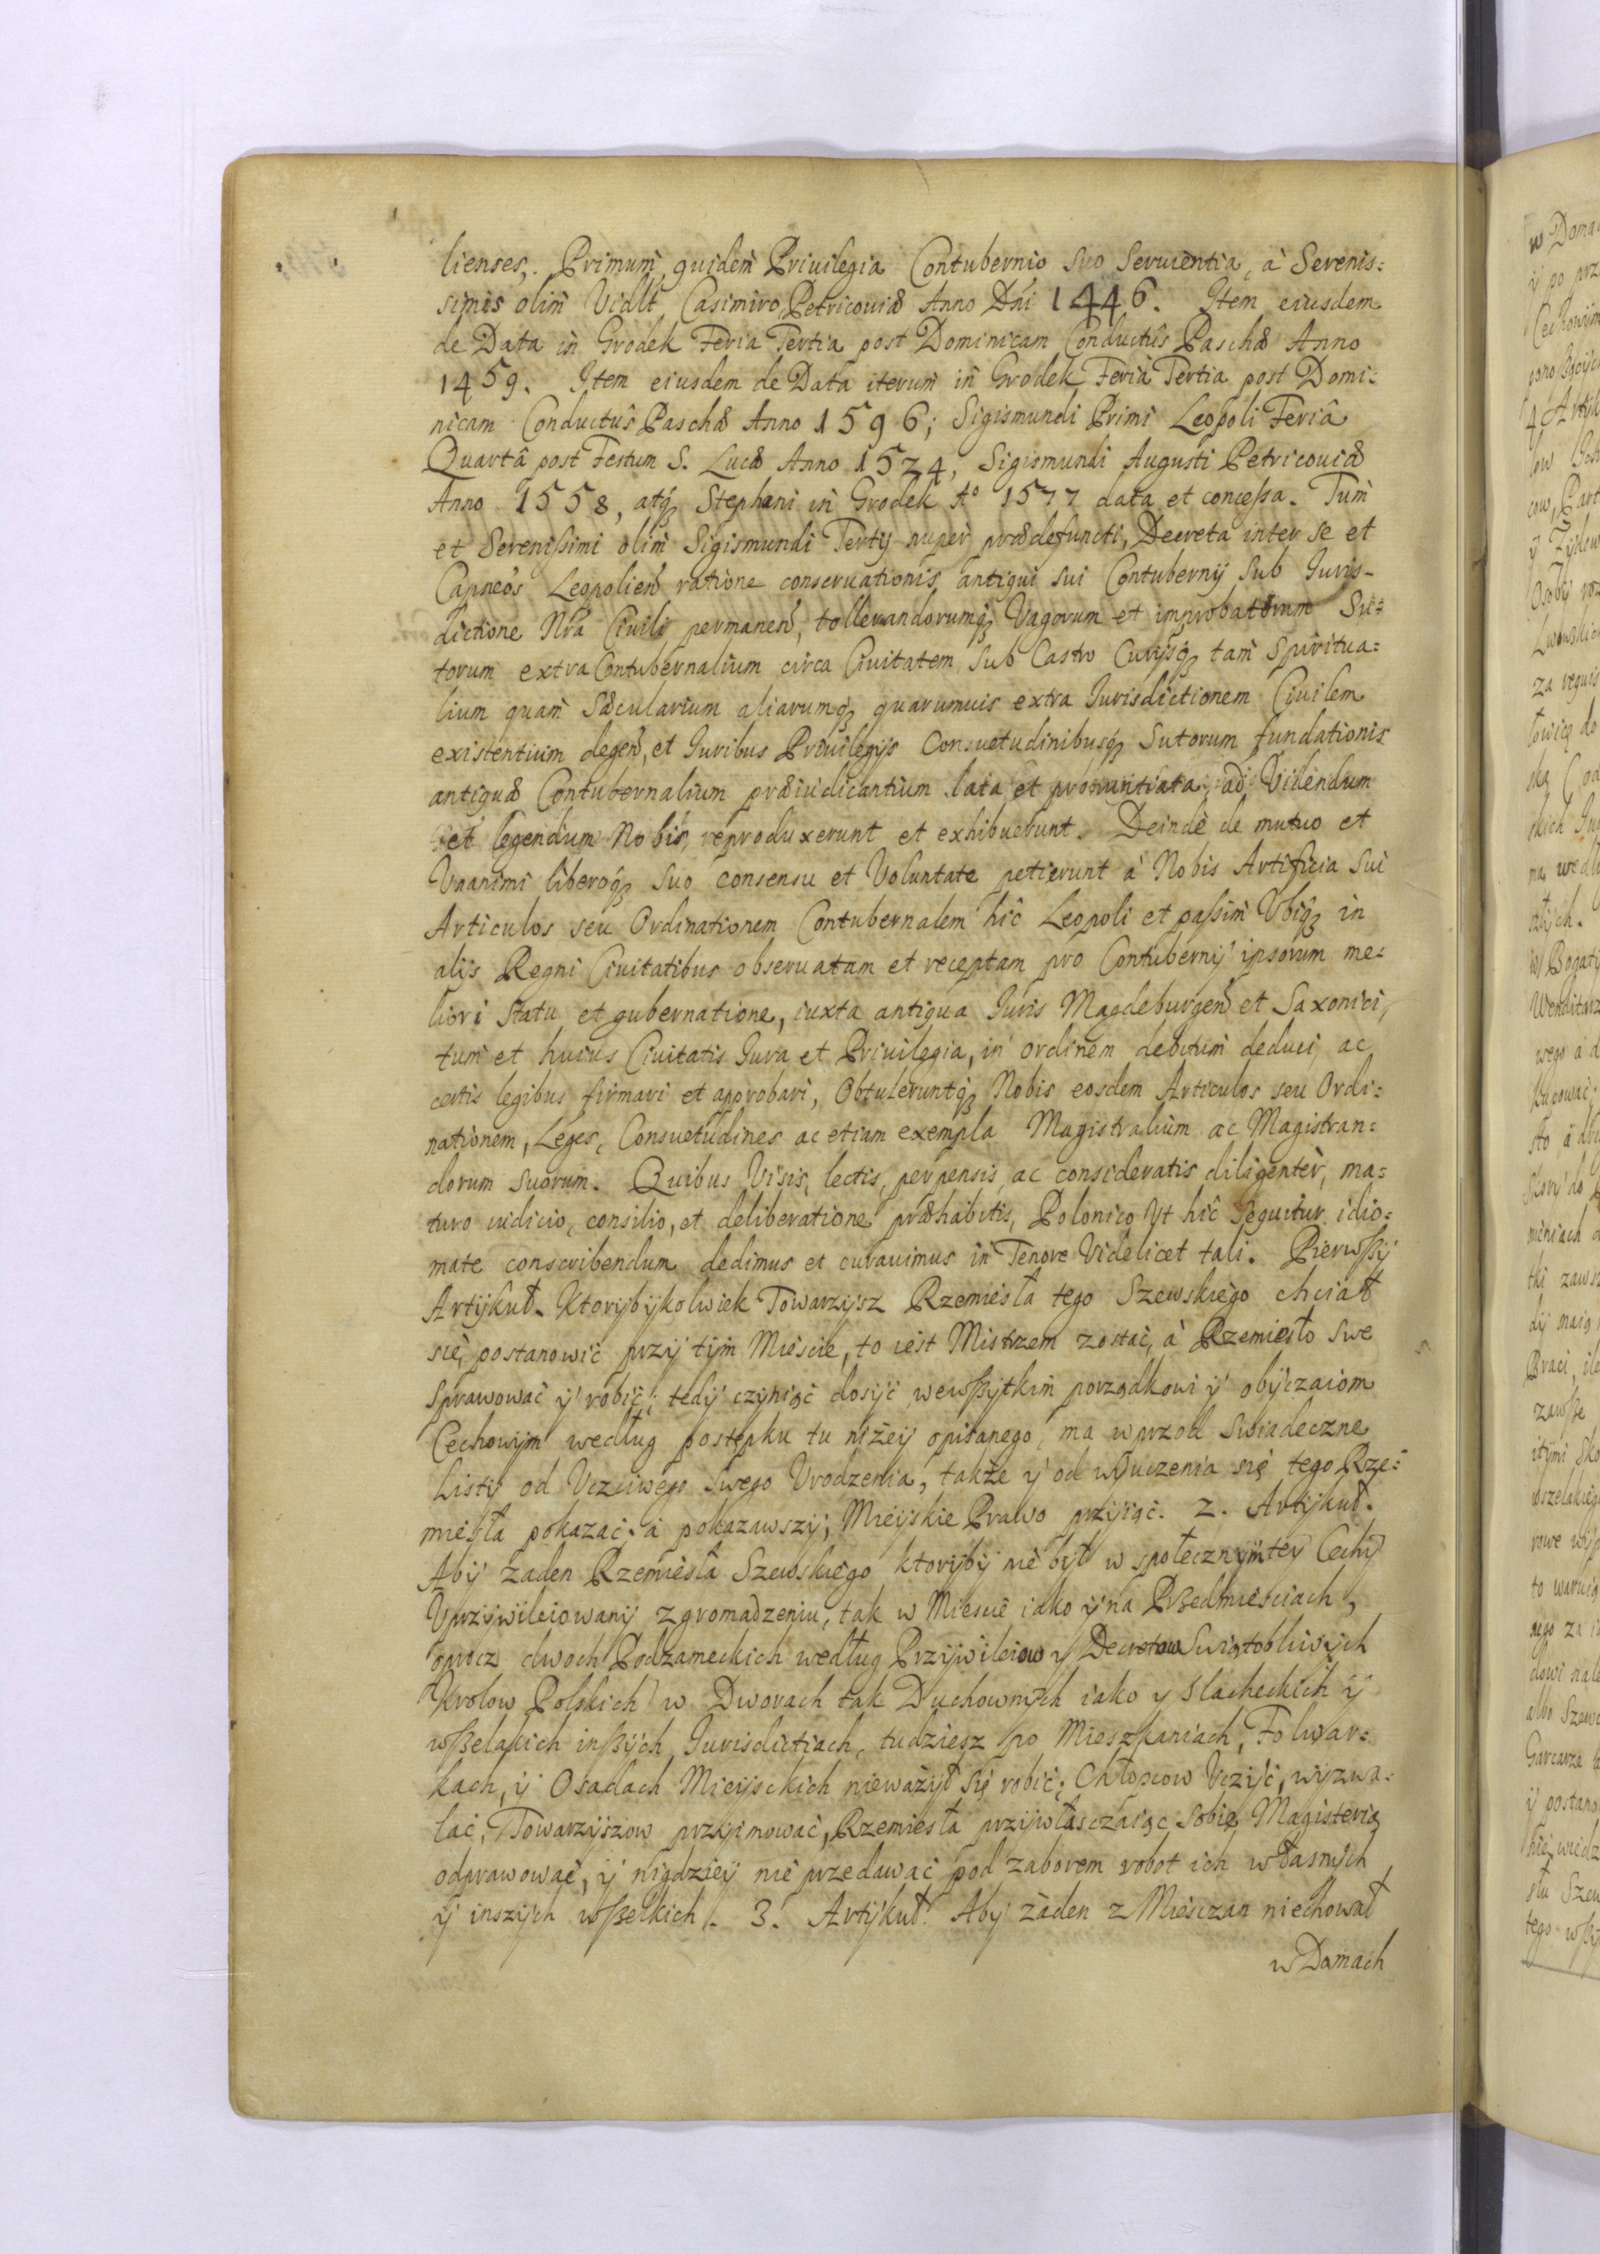 lienses, Primum quidem Priuilegia Contubernio suo Seruientia, à Serenis:
simis olim Vidlt Casimiro, Petricouiæ Anno Dni 1446. Item eiusdem
de Data in Grodek Feria Tertia post Dominicam Conductûs Paschæ Anno
1459. Item eiusdem de Data iterum in Grodek Feria Tertia post Domi:
nicam Conductûs Paschæ Anno 1596; Sigismundi Primi Leopoli Feriâ
Quartâ post Festum S. Lucæ Anno 1524, Sigismundi Augusti Petricouiæ
Anno 1558, atq3 Stephani in Grodek Aº 1577 data et concessa. Tum
et Serenissimi olim Sigismundi Tertij nuper prædefuncti, Decreta inter se et
Capneos Leopolien ratione conseruationis antiqui sui Contubernij sub Juris-
dictione Nra Ciuili permanen, tollerandorumq3 Vagorum et improbatorum Su:
torum extra Contubernalium circa Ciuitatem sub Castro Curijsq3 tam Spiritua:
lium quam Sæcularium aliarumq3 quarumuis extra Jurisdictionem Ciuilem
existentium degen, et Juribus Priuilegijs Consuetudinibusq3 Sutorum fundationis
antiquæ Contubernalium præiudicantium lata et pronuntiata, ad Videndum
et legendum Nobis, reproduxerunt et exhibuerunt. Deindè de mutuo et
Vnanimi liberoq3 suo consensu et Voluntate petierunt à Nobis Artificia sui
Articulos seu Ordinationem Contubernalem hîc Leopoli et passim Vbiq3 in
alijs Regni Ciuitatibus obseruatam et receptam pro Contubernij ipsorum me-
liori statu et gubernatione, iuxta antiqua Juris Magdeburgen et Saxonici,
tum et huius Ciuitatis Jura et Priuilegia, in ordinem debitum deduci ac
certis legibus firmari et approbari, Obtuleruntq3 Nobis eosdem Articulos seu Ordi:
nationem, Leges, Consuetudines ac etiam exempla Magistralium ac Magistran:
dorum suorum. Quibus Visis, lectis, perpensis, ac consideratis diligentèr, ma:
turo iudicio, consilio, et deliberatione præhabitis, Polonico Vt hîc sequitur idio:
mate conscribendum dedimus et curauimus in Tenore Videlicet tali. Pierwßy
Artÿkuł. Ktorÿbÿkolwiek Towarzÿsz Rzemiesła tego Szewskiego chciał
się postanowić przÿ tÿm Mieście, to iest Mistrzem zostać, à Rzemiesło swe
sprawować ÿ robić; tedÿ czÿniąc dosÿć wewßÿtkim porządkowi ÿ obÿczaiom
Cechowÿm według postępku tu niżeÿ opisanego, ma wprzod Swiadeczne
Listÿ od Vczciwego swego Vrodzenia, także ÿ od wÿuczenia się tego Rze:
miesła pokazać. à pokazawszÿ; Mieÿskie Prawo przÿiąć. 2. Artÿkuł.
Abÿ żaden Rzemiesła Szewskiego ktorÿbÿ nie bÿł w społecznÿm teÿ Cechÿ
Vprzÿwileiowanÿ zgromadzeniu, tak w Miescie iako ÿ na Przedmiesciach,
oprocz dwoch Podzameckich według Przÿwileiow ÿ Decretow Swiątobliwÿch
Krolow Polskich w Dworach tak Duchownÿch iako y Slacheckich ÿ
wßelakich inßÿch Jurisdictiach, tudziesz po Mieszkaniach, Folwar:
kach, ÿ Osadach Mieÿsckich nieważÿł się robić, Chłopcow Vczÿć, wÿzwa:
lać, Towarzÿszow przÿimować, Rzemiesła przÿwłasczaiąc sobie Magisterią
odprawować, ÿ nigdzieÿ nie przedawać pod zaborem robot ich własnÿch
ÿ inszÿch wßelkich. 3. Artÿkuł. Abÿ żaden z Miesczan niechował
w Domach